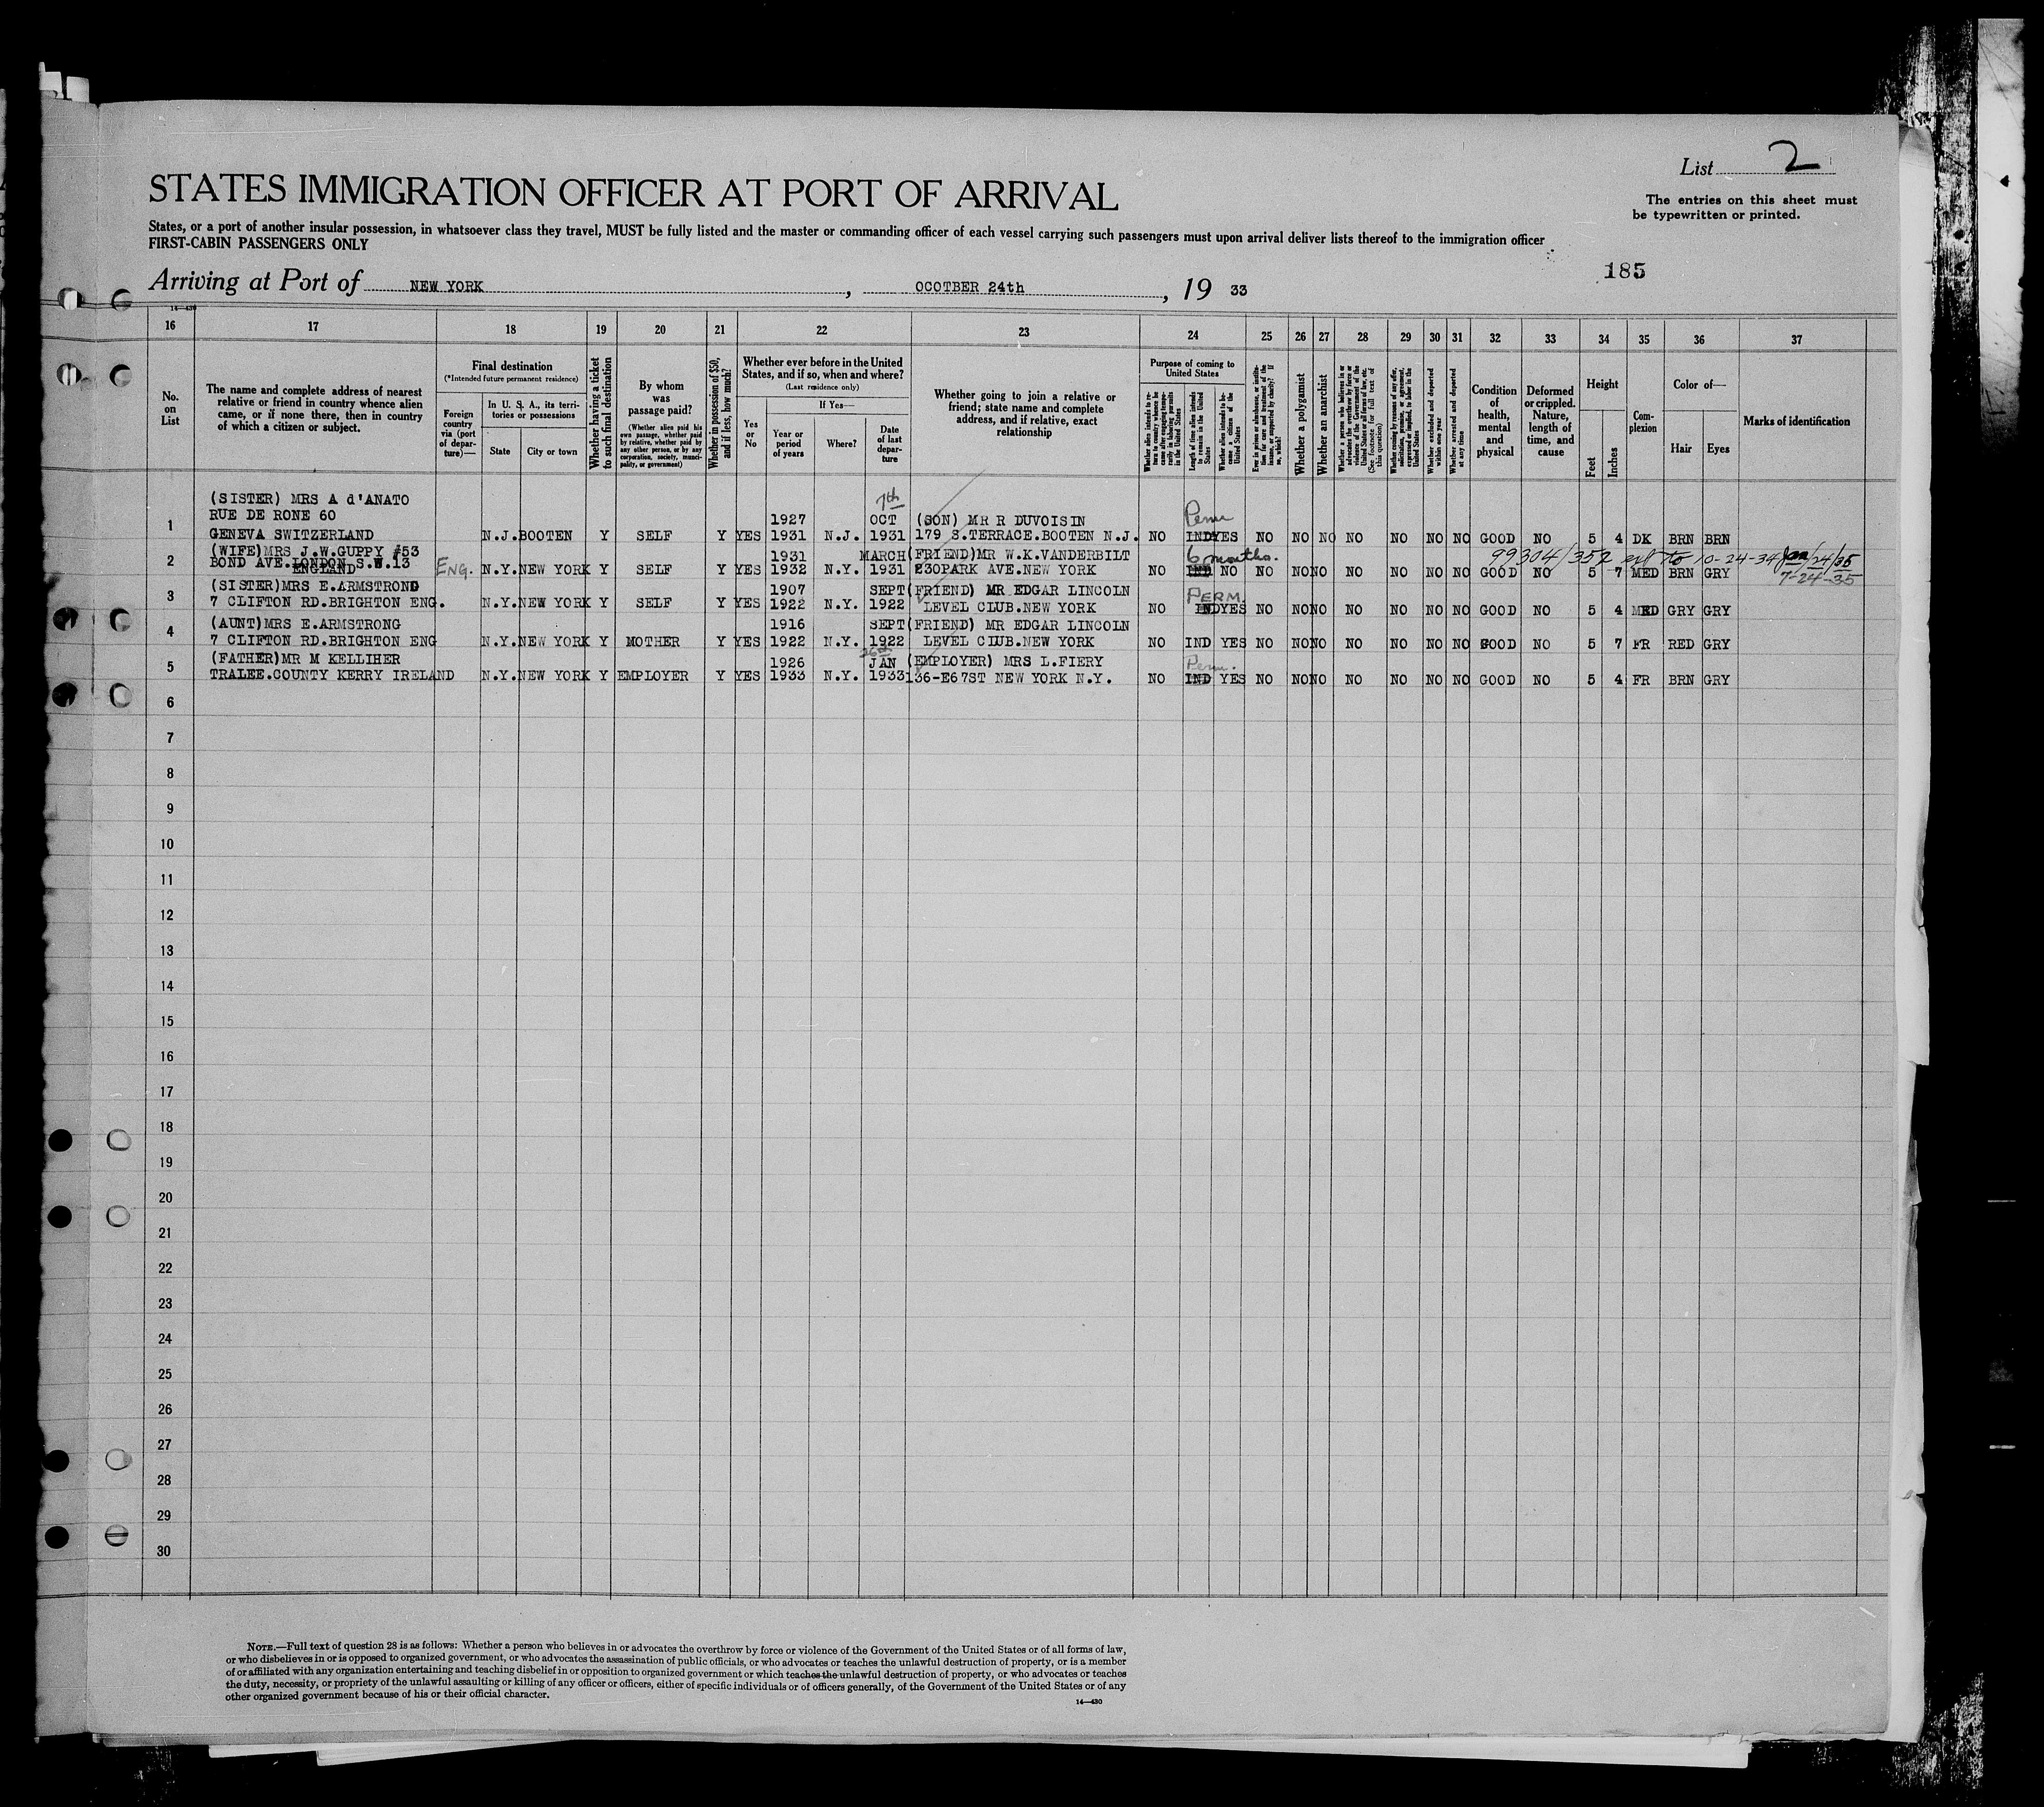 List 2
STATES IMMIGRATION OFFICER AT PORT OF ARRIVAL
The entries on this sheet must
be typewritten or printed.
States, or a port of another insular possession, in whatsoever class they travel, MUST be fully listed and the master or commanding officer of each vessel carrying such passengers must upon arrival deliver lists thereof to the immigration officer
FIRST-CABIN PASSENGERS ONLY
185
Arriving at Port of NEW YORK, OCOTBER 24th, 19 33
14—430
16 17 18 19 20 21 22 23 24 25 26 27 28 29 30 31 32 33 34 35 36 37
No. on List
The name and complete address of nearest relative or friend in country whence alien came, or if none there, then in country of which a citizen or subject.
Final destination
(*Intended future permanent residence)
Foreign country via (port of departure)—
In U. S. A., its territories or possessions
State
City or town
Whether having a ticket to such final destination
By whom was passage paid?
(Whether alien paid his own passage, whether paid by relative, whether paid by any other person, or by any corporation, society, municipality, or government)
Whether in possession of $50, and if less, how much?
Whether ever before in the United States, and if so, when and where?
(Last residence only)
Yes or No
If Yes—
Year or period of years
Where?
Date of last departure
Whether going to join a relative or friend; state name and complete address, and if relative, exact relationship
Purpose of coming to United States
Whether alien intends to return to country whence he came after engaging temporarily in laboring pursuits in the United States
Length of time alien intends to remain in the United States
Whether alien intends to become a citizen of the United States
Ever in prison or almshouse, or institution for care and treatment of the insane, or supported by charity? If so, which?
Whether a polygamist
Whether an anarchist
Whether a person who believes in or advocates the overthrow by force or violence of the Government of the United States or all forms of law, etc. (See footnote for full text of this question)
Whether coming by reason of any offer, solicitation, promise, or agreement, expressed or implied, to labor in the United States
Whether excluded and deported within one year
Whether arrested and deported at any time
Condition of health, mental and physical
Deformed or crippled. Nature, length of time, and cause
Height
Feet
Inches
Complexion
Color of—
Hair
Eyes
Marks of identification
(SISTER) MRS A d'ANATO 7th
RUE DE RONE 60 1927 OCT (SON) MR R DUVOISIN Perm
1 GENEVA SWITZERLAND N.J. BOOTEN Y SELF Y YES 1931 N.J. 1931 179 S.TERRACE.BOOTEN N.J. NO IND YES NO NO NO NO NO NO NO GOOD NO 5 4 DK BRN BRN
(WIFE)MRS J.W.GUPPY #53 1931 MARCH (FRIEND)MR W.K.VANDERBILT 6 months. 99304/352 ext to 10-24-34 Jan/24/35
2 BOND AVE.LONDON S.W.13 ENGLAND ENG. N.Y. NEW YORK Y SELF Y YES 1932 N.Y. 1931 230PARK AVE.NEW YORK NO IND NO NO NO NO NO NO NO NO GOOD NO 5 7 MED BRN GRY 7-24-35
(SISTER)MRS E.ARMSTRONG 1907 SEPT (FRIEND) MR EDGAR LINCOLN PERM.
3 7 CLIFTON RD.BRIGHTON ENG. N.Y. NEW YORK Y SELF Y YES 1922 N.Y. 1922 LEVEL CLUB.NEW YORK NO IND YES NO NO NO NO NO NO NO GOOD NO 5 4 MED GRY GRY
(AUNT)MRS E.ARMSTRONG 1916 SEPT (FRIEND) MR EDGAR LINCOLN
4 7 CLIFTON RD.BRIGHTON ENG N.Y. NEW YORK Y MOTHER Y YES 1922 N.Y. 1922 LEVEL CLUB.NEW YORK NO IND YES NO NO NO NO NO NO NO GOOD NO 5 7 FR RED GRY
(FATHER)MR M KELLIHER 1926 26th JAN (EMPLOYER) MRS L.FIERY Perm.
5 TRALEE.COUNTY KERRY IRELAND N.Y. NEW YORK Y EMPLOYER Y YES 1933 N.Y. 1933 136-E67ST NEW YORK N.Y. NO IND YES NO NO NO NO NO NO NO GOOD NO 5 4 FR BRN GRY
6
7
8
9
10
11
12
13
14
15
16
17
18
19
20
21
22
23
24
25
26
27
28
29
30
NOTE.—Full text of question 28 is as follows: Whether a person who believes in or advocates the overthrow by force or violence of the Government of the United States or of all forms of law,
or who disbelieves in or is opposed to organized government, or who advocates the assassination of public officials, or who advocates or teaches the unlawful destruction of property, or is a member
of or affiliated with any organization entertaining and teaching disbelief in or opposition to organized government or which teaches the unlawful destruction of property, or who advocates or teaches
the duty, necessity, or propriety of the unlawful assaulting or killing of any officer or officers, either of specific individuals or of officers generally, of the Government of the United States or of any
other organized government because of his or their official character.
14—430